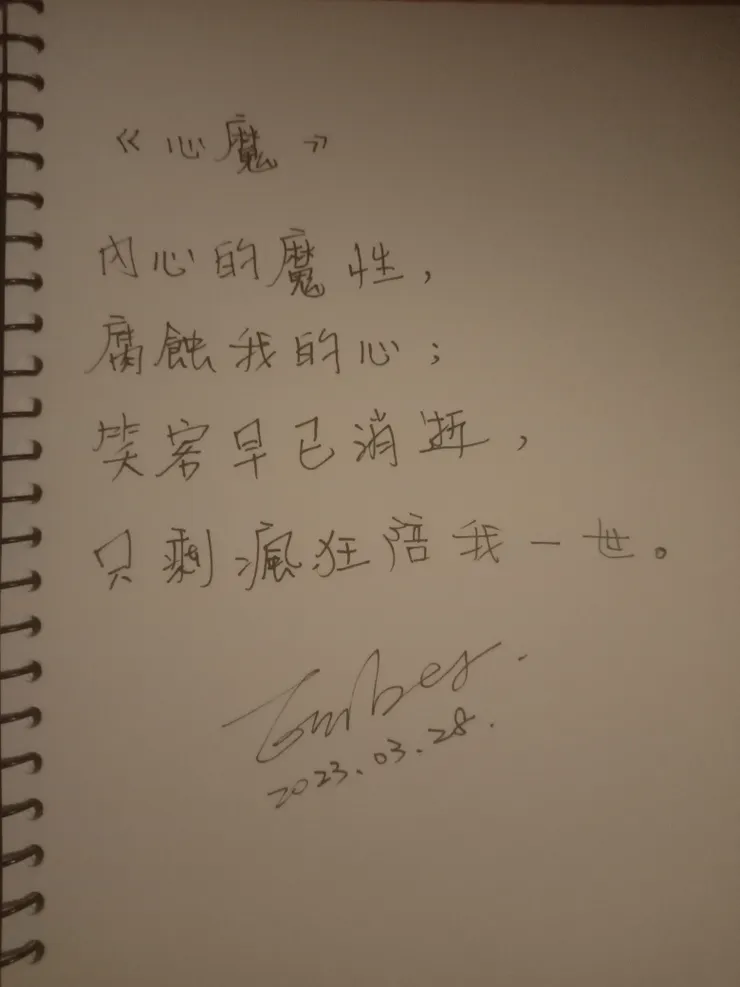 《心魔》
內心的魔性，
腐蝕我的心；
笑容早已消逝，
只剩瘋狂陪我一世。
Ember.
2023.03.28.